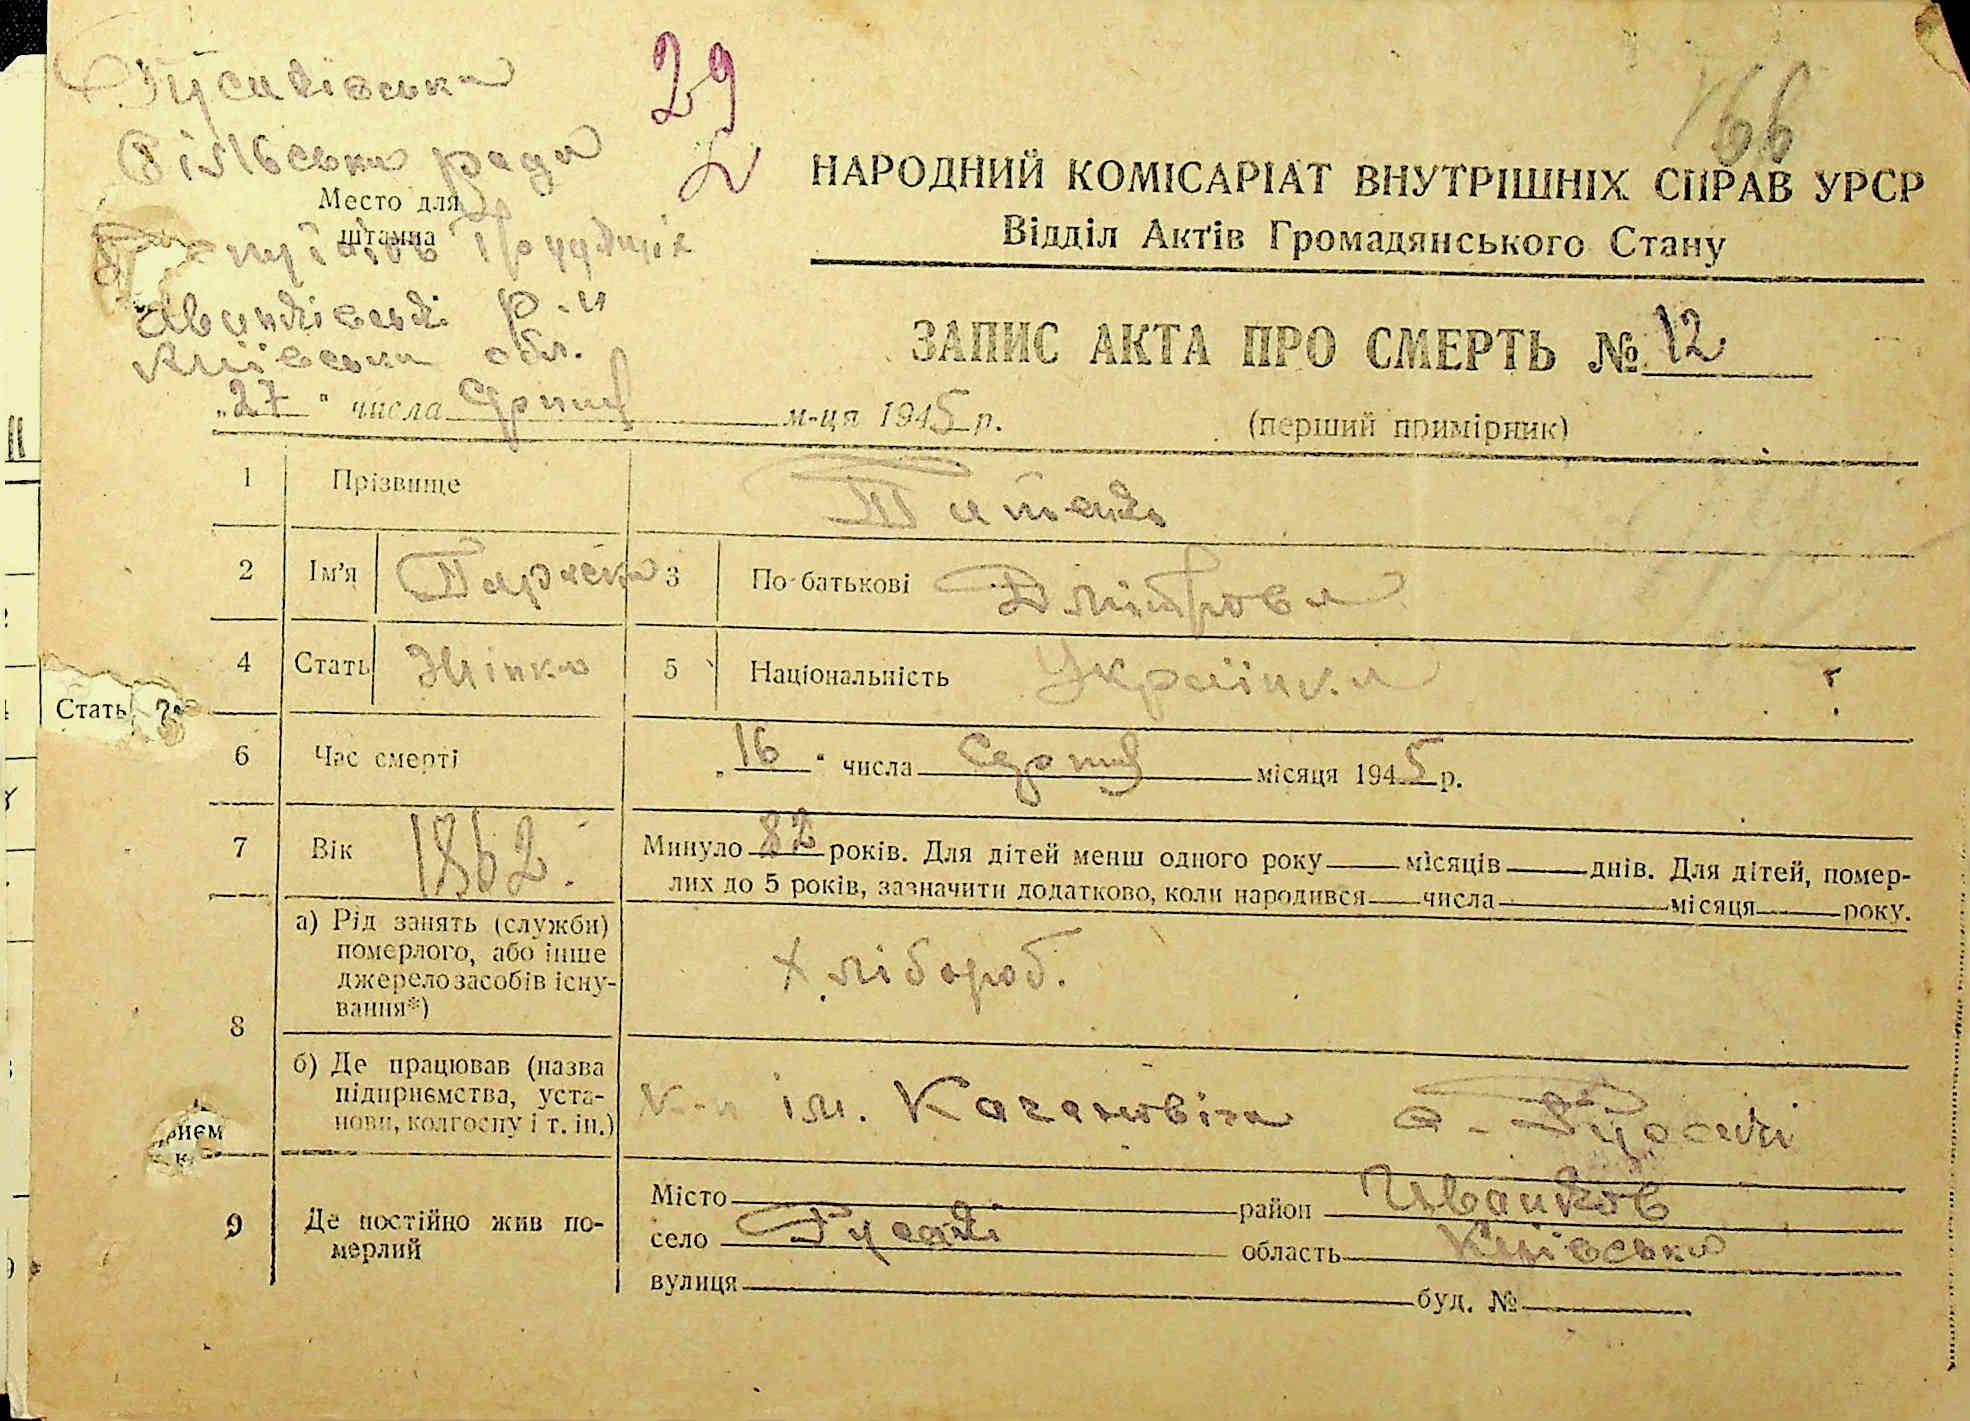 Русаківська
29
166
Сільська рада
Место для
штампа
Депутатів Трудящих
Іванківський р-н
Київська обл.
НАРОДНИЙ КОМІСАРІАТ ВНУТРІШНІХ СПРАВ УРСР
Відділ Актів Громадянського Стану
ЗАПИС АКТА ПРО СМЕРТЬ № 12
„27" числа Серпня м-ця 1945 р.
(перший примірник)
1 Прізвище
2 Ім'я Параска 3 По-батькові Дмітровна
4 Стать Жінка 5 Національність Українка
Стать
6 Час смерті „16" числа Серпня місяця 1945 р.
7 Вік 1862. Минуло 82 років. Для дітей менш одного року місяців днів. Для дітей, помер-
лих до 5 років, зазначити додатково, коли народився числа місяця року.
8 а) Рід занять (служби)
померлого, або інше
джерело засобів існу-
вання*)
Хлібороб.
б) Де працював (назва
підприємства, уста-
нови, колгоспу і т. ін.)
К-п ім. Кагановіча с.
9 Де постійно жив по-
мерлий
Місто район Иванков
село область Київська
вулиця буд. №